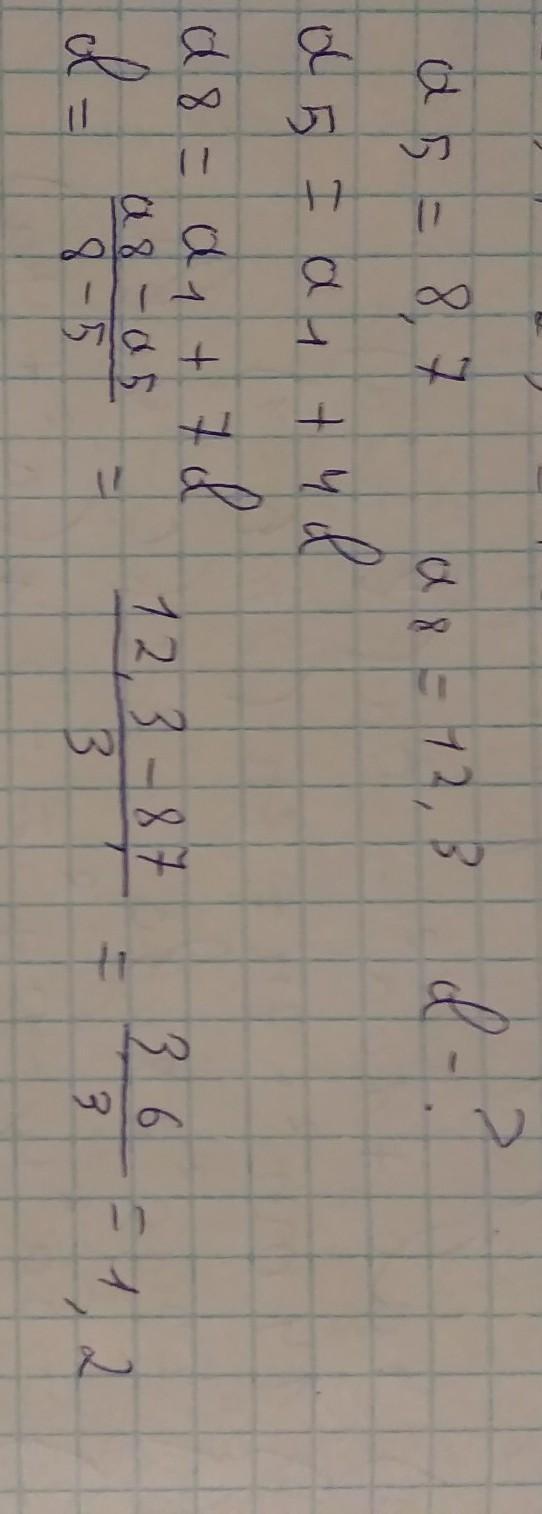 a5 = 8,7 a8 = 12,3 d - ?
a5 = a1 + 4d
a8 = a1 + 7d
d = a8 - a5 / 8 - 5 = 12,3 - 8,7 / 3 = 3,6 / 3 = 1,2